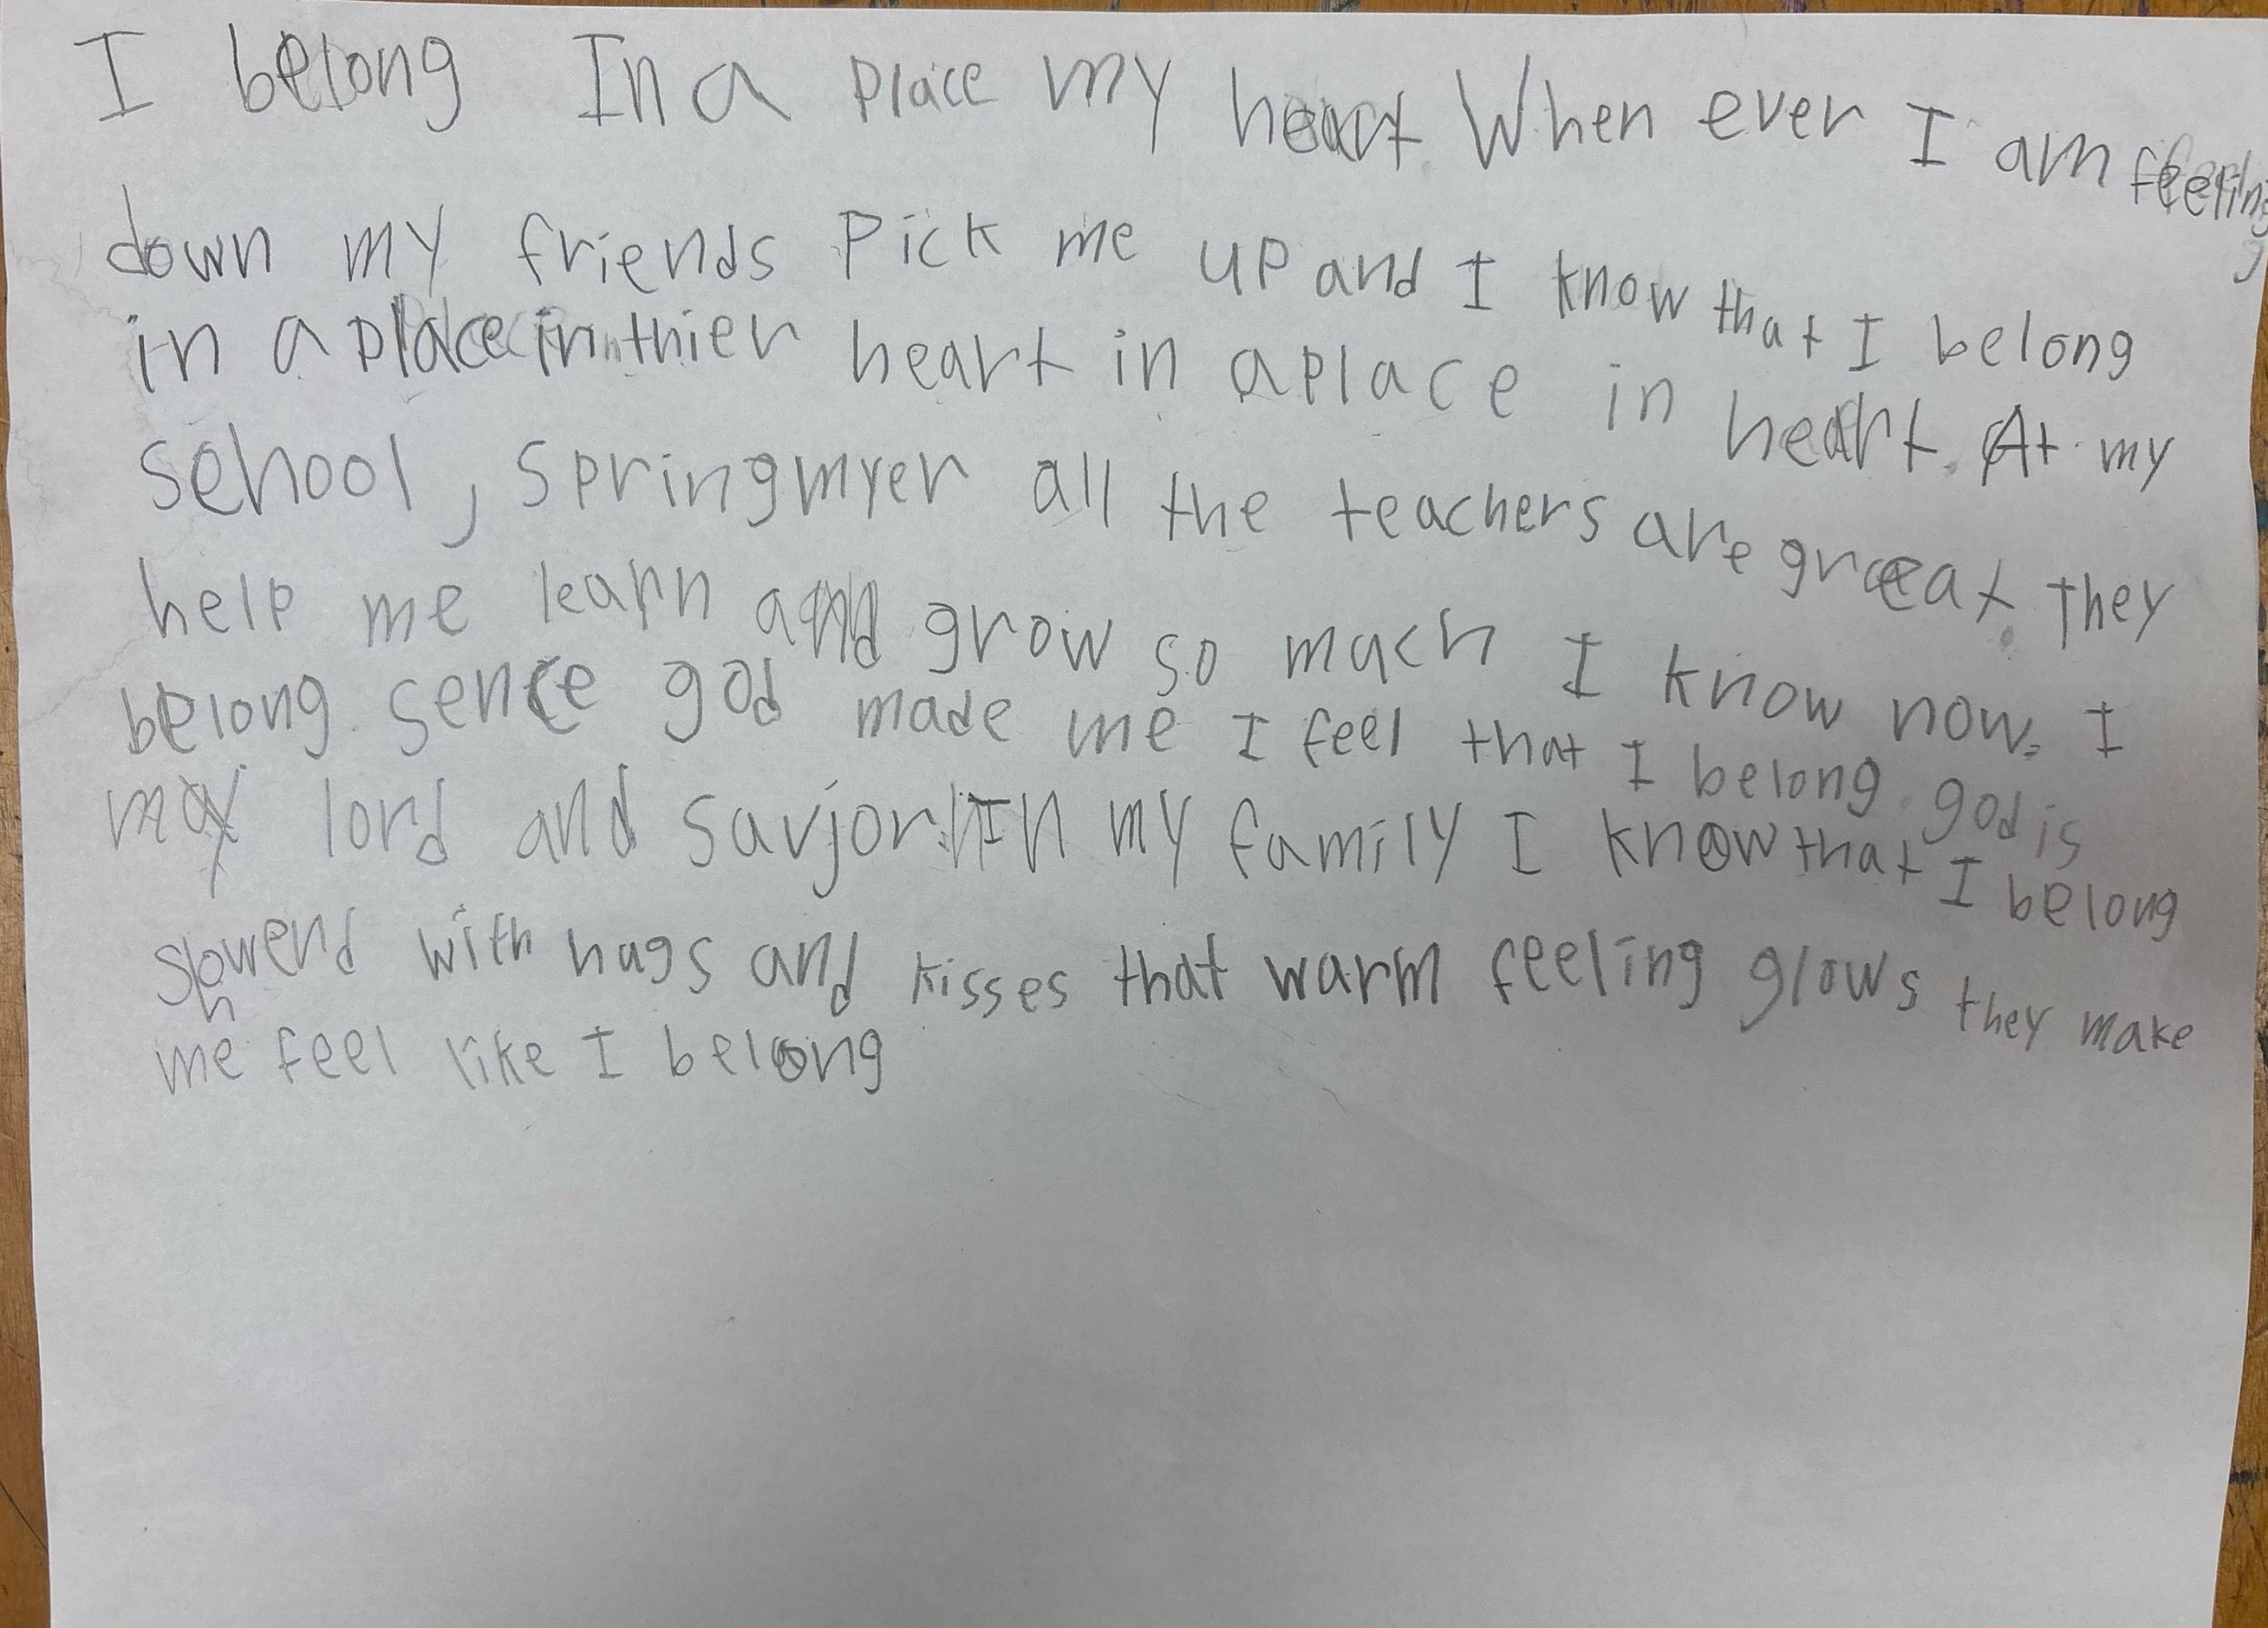 I belong In a place my heart. When ever I am feeling
down my friends Pick me up and I know that I belong
in a place in thier heart in a place in heart. At my
school, springmyer all the teachers are great they
help me learn and grow so much I know now. I
belong. sence god made me I feel that I belong. god is
my lord and savjor. In my family I know that I belong
showerd with hugs and kisses that warm feeling glows they make
me feel like I belong